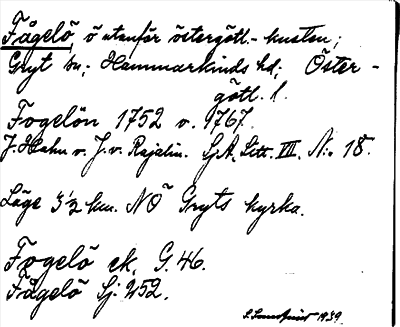 Fågelö, ö utanför östergötl.-kusten;
Gryt sn; Hammarkinds hd; Öster-
götl. l.
Fogelön 1752 o. 1767.
J. Hahn o. J. v. Rajalin. GA. Litt. VII. N:o 18.
Läge 3 1/2 km. NÖ Gryts kyrka.
Fogelö ek. G. 46.
Fågelö Sj. 252.
1939.